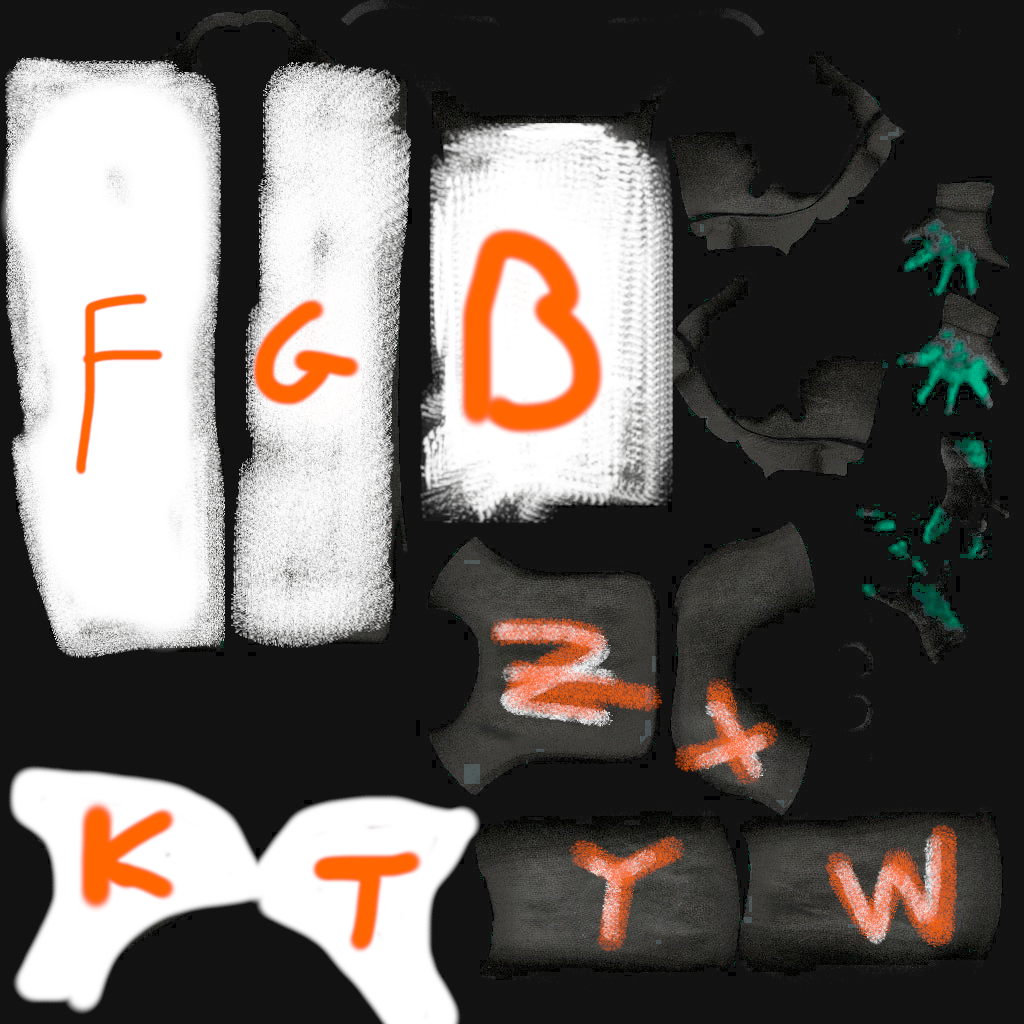 F G B
Z X
K T Y W